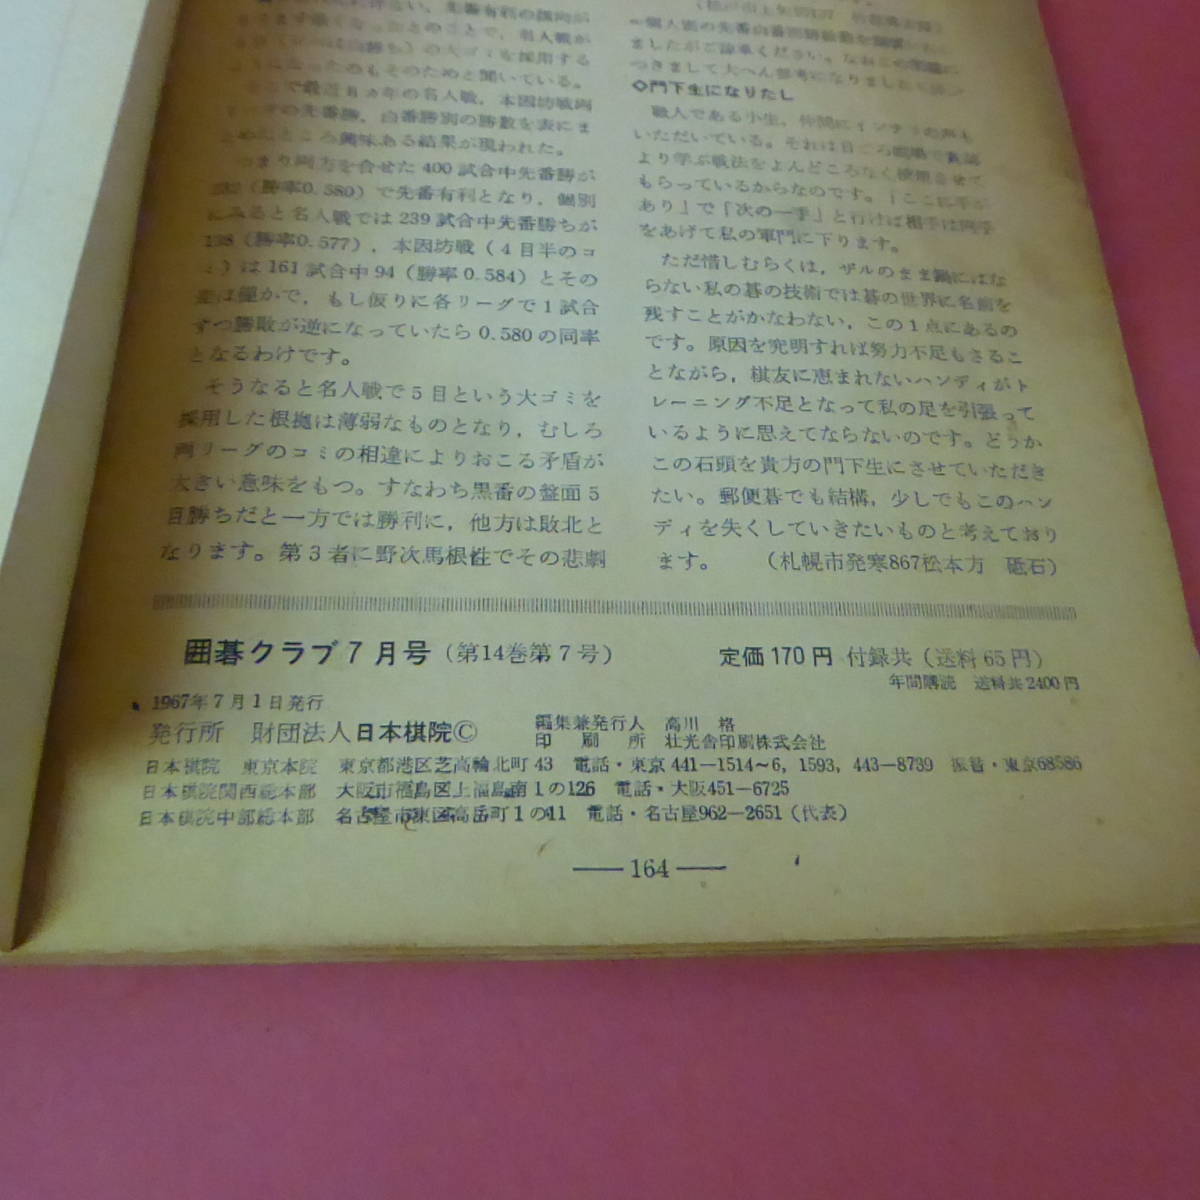 名人戦が
の大ゴミを採用する
のもそのためと聞いている。
の名人戦，本因坊戦両
の先番勝，白番勝別の勝数を表にま
ところ興味ある結果が現われた。
つまり両方を合せた400試合中先番勝が
232（勝率0.580）で先番有利となり，個別
にみると名人戦では239試合中先番勝ちが
138（勝率0.577），本因坊戦（4目半のコ
ミ）は161試合中94（勝率0.584）とその
差は僅かで，もし仮りに各リーグで1試合
ずつ勝敗が逆になっていたら0.580の同率
となるわけです。
そうなると名人戦で5目という大ゴミを
採用した根拠は薄弱なものとなり，むしろ
両リーグのコミの相違によりおこる矛盾が
大きい意味をもつ。すなわち黒番の盤面5
目勝ちだと一方では勝利に，他方は敗北と
なります。第3者に野次馬根性でその悲劇
ましたがご諒承ください。
つきまして大へん参考になりました
◇門下生になりたし
職人である小生，仲間に
いただいている。それは日ごろ
より学ぶ戦法をよんどころなく使用させて
もらっているからなのです。「ここに手が
あり」で「次の一手」と行けば相手は両手
をあげて私の軍門に下ります。
ただ惜しむらくは，ザルのまま鍋にはな
らない私の碁の技術では碁の世界に名前を
残すことがかなわない，この1点にあるの
です。原因を究明すれば努力不足もさるこ
とながら，棋友に恵まれないハンディがト
レーニング不足となって私の足を引張って
いるように思えてならないのです。どうか
この石頭を貴方の門下生にさせていただき
たい。郵便碁でも結構，少しでもこのハン
ディを失くしていきたいものと考えており
ます。　（札幌市発寒867松本方　砥石）
囲碁クラブ7月号（第14巻第7号）　定価170円 付録共（送料65円）
年間購読　送料共2400円
1967年7月1日発行
発行所　財団法人日本棋院©
編集兼発行人　高川　格
印　刷　所　壮光舎印刷株式会社
日本棋院　東京本院　東京都港区芝高輪北町43　電話・東京441—1514~6, 1593, 443—8739　振替・東京68586
日本棋院関西総本部　大阪市福島区上福島南1の126　電話・大阪451—6725
日本棋院中部総本部　名古屋市東区高岳町1の11　電話・名古屋962—2651（代表）
—— 164 ——